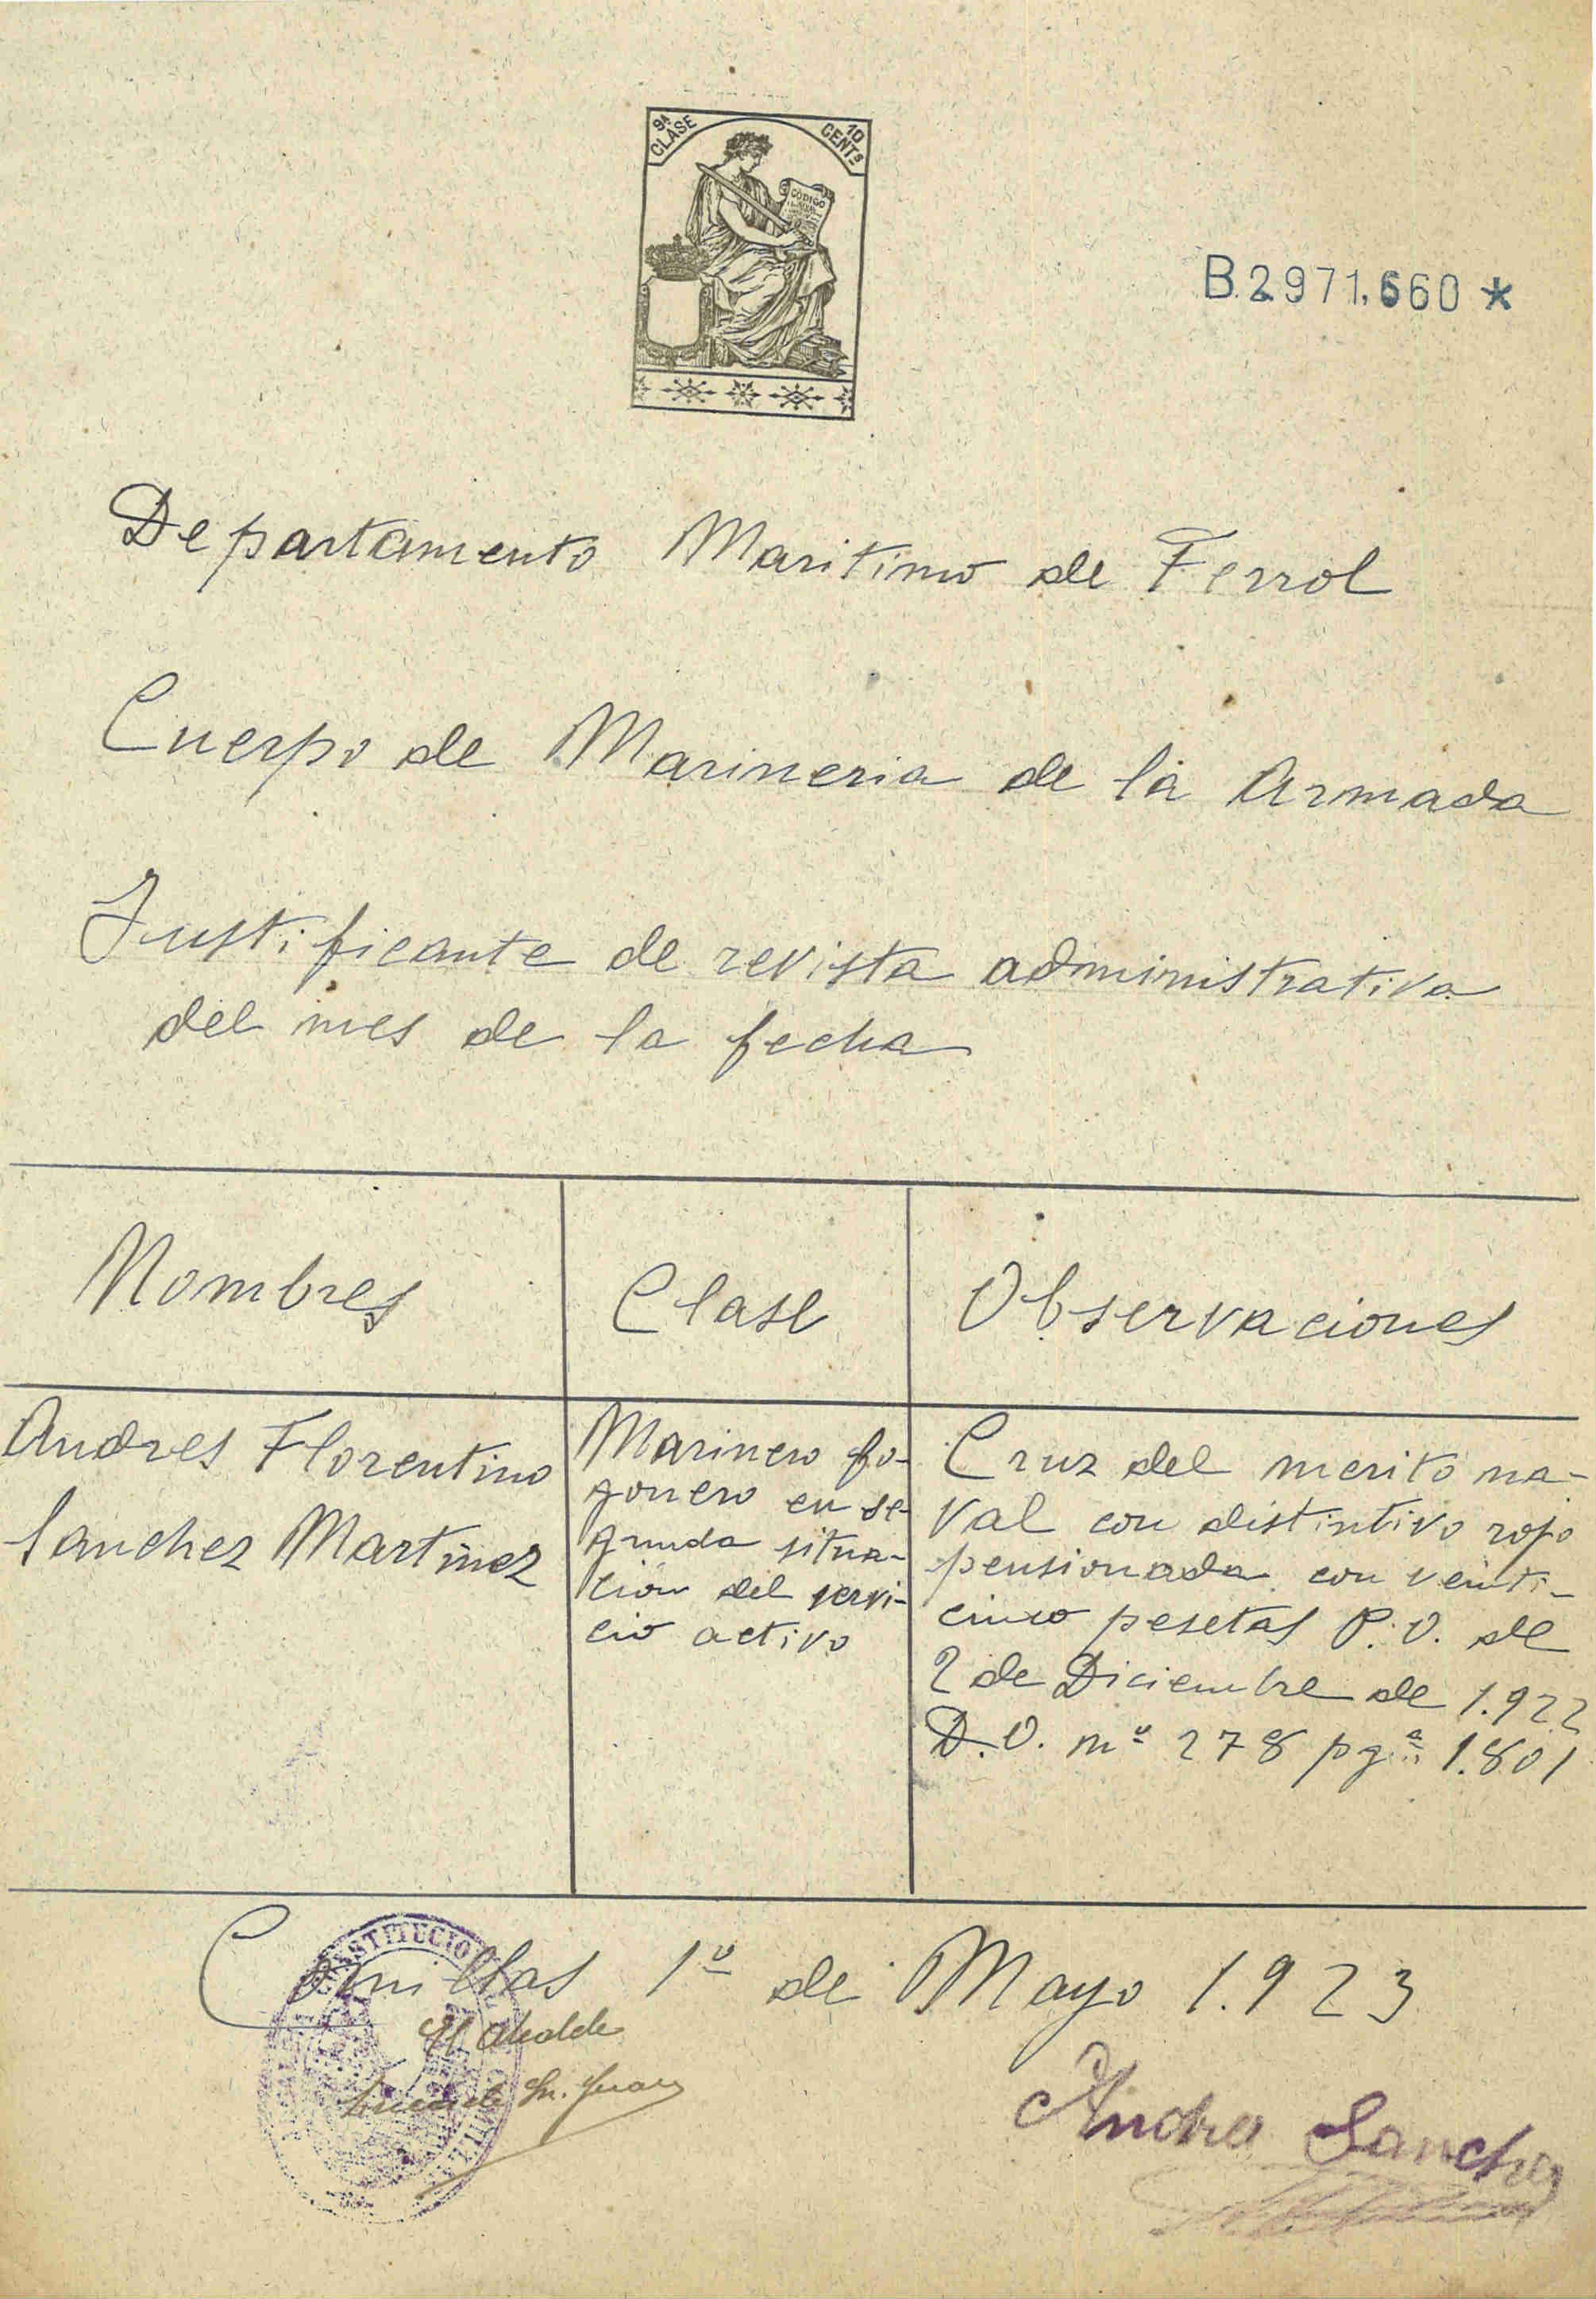 9ª CLASE
10 CENTs
CODIGO
B.2.971.660 *
Departamento Maritimo de Ferrol
Cuerpo de Marineria de la Armada
Justificante de revista administrativa
del mes de la fecha
Nombres Clase Observaciones
Andres Florentino
Sanchez Martinez
Marinero fo-
gonero en se-
gunda situa-
cion del servi-
cio activo
Cruz del merito na-
val con distintivo rojo
pensionada con venti-
cinco pesetas P.O. de
2 de Diciembre de 1.922
D.O. nº 278 pgª 1.801
Comillas 1º de Mayo 1.923
El Alcalde
Sn. Juan
Andres Sanchez